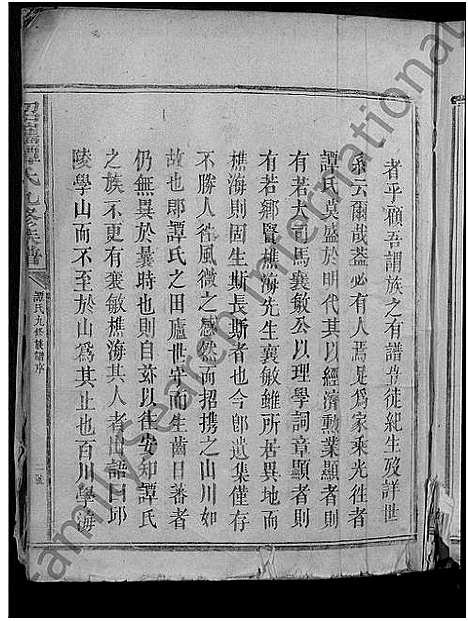 者乎顧吾謂族之有譜豈徒紀生歿詳世
系云爾哉葢必有人焉足為家乘光徃者
譚氏莫盛於明代其以經濟勳業顯者則
有若大司馬襄敏公以理學詞章顯者則
有若鄉賢樵海先生襄敏雖所居異地而
樵海則固生斯長斯者也今卽遺集僅存
不勝人徃風微之感然而招携之山川如
故也卽譚氏之田廬世守而生齒日蕃者
仍無異於曩時也則自茲以徃安知譚氏
之族不更有襄敏樵海其人者出語曰邱
陵學山而不至於山爲其止也百川學海
譚氏九修族譜
譚氏九修族譜序
Familysearch International